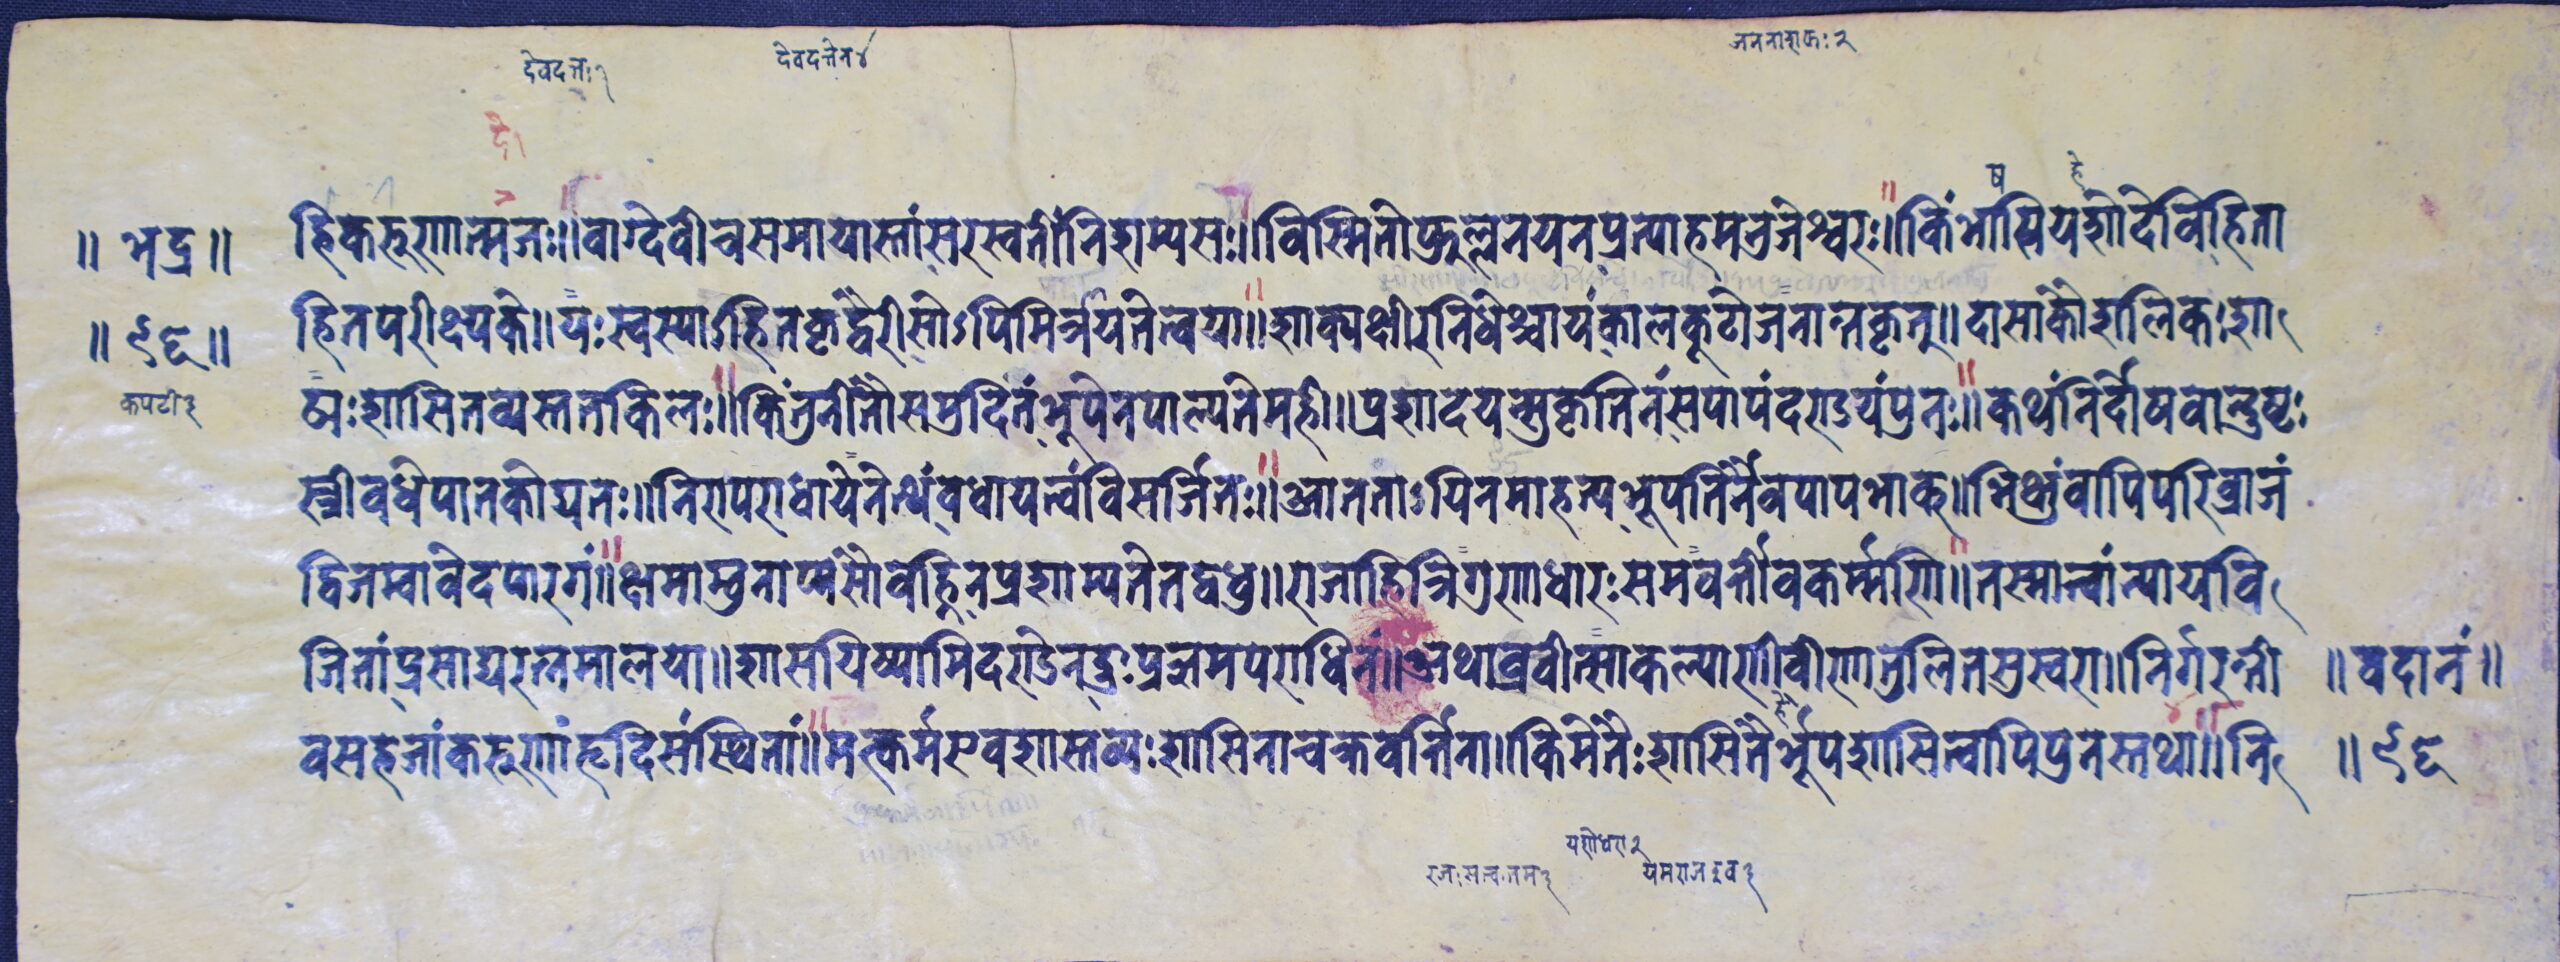 देवदत्तः१
देवदत्तेन४
जननाशकः२
॥ भद्र ॥
हिकरुणात्मजः॥वाग्देवीवसमायास्तांसरस्वतींनिशम्यसः॥विस्मितोफुल्लनयनप्रत्याहमनुजेश्वरः॥किंभाषियशोदेविहिता
॥ ९६ ॥
हितपरीक्ष्यके॥यःस्वस्याऽहितकृद्वैरीसोऽपिमित्रयतेत्वया॥शाक्यक्षीरनिधेश्चायंकालकूटोजनान्तकृत्॥दासाकोशलिकःशा
कपटी३
ठ्यःशासितव्यस्ततकिलः॥किंतुनीतौसमुदितंभूपेनपाल्यतेमही॥प्रशादेयत्सुकृतिनंसपापंदण्डयंपुनः॥कथंनिर्दोषवान्दुष्टः
स्त्रीवधेपातकीयतः॥निरापराधायेनेत्थंवधायत्वंविसर्जितः॥आतताऽयिनमाहत्यभूपतिर्नैवपापभाक्॥भिक्षुंवापिपरिब्राजं
द्विजम्वावेदपारगं॥क्षमास्तुनाप्यसौवह्निनप्रशाम्यतेतद्वधु॥राजाहित्रिगुणाधारःसमवर्त्तीवकर्म्मणि॥तस्मात्त्वांन्यायवि
जितांप्रसाद्यरत्नमालया॥शासयिष्यामिदण्डेनदुःप्रज्ञमपराधिनं॥अथाव्रवीत्साकल्याणीवीणातुलितसुस्वरा॥निर्गरन्ती
॥ वदानं ॥
वसहजांकरुणांहृदिसंस्थितां॥मत्कर्मएवशास्तव्यःशासिताचक्रवर्त्तिना॥किमेतैःशासितैर्भूपशासित्वापिपुनस्तथा॥नि
॥ ९६
यशोधरा२
रजःसत्वःतम३
यमराजइव३